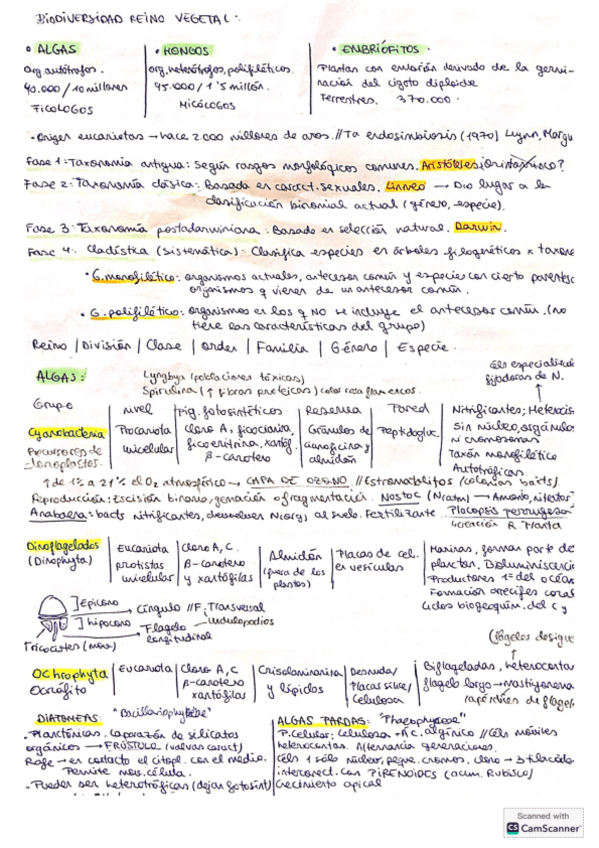 BIODIVERSIDAD REINO VEGETAL:
• ALGAS
Org. autótrofos.
40.000/10 millones
FICOLOGOS
• HONGOS
org. heterótrofos, polifiléticos.
45.000/1'5 millón.
MICÓLOGOS
• EMBRIÓFITOS.
Plantas con embrión derivado de la germi-
nación del cigoto diploide
Terrestres. 370.000.
• Origen eucariotas → hace 2000 millones de años. // Ta endosimbiosis (1970) Lynn, Margu
Fase 1: Taxonomía antigua: Según rasgos morfológicos comunes. Aristóteles
Fase 2: Taxonomía clásica: Basada en caract. sexuales. Linneo → Dio lugar a la
clasificación binomial actual (género, especie).
Fase 3: Taxonomía postdarwiniana: Basado en selección natural. Darwin.
Fase 4: Cladística (sistemática): Clasifica especies en árboles filogenéticos x taxone
• G. monofilético: organismos actuales, antecesor común y especies con cierto parentesc
organismos q vienen de un antecesor común.
• G. polifilético: organismos en los q NO se incluye el antecesor común. (no
tiene las características del grupo)
Reino / División / Clase / Orden / Familia / Género / Especie.
ALGAS:
Lyngbya (poblaciones tóxicas)
Spirulina (↑ fibras proteicas) color rosa flamencos.
Céls especializ
fijadoras de N.
Grupo
Cyanobacteria
Precursores de
cloroplastos.
nivel
Procariota
unicelular
pig. fotosintéticos
Cloro A, ficocianina,
ficoeritrina, xantóf.
β-caroteno
Reserva
Gránulos de
cianoficina y
almidón
Pared
Peptidogluc.
Nitrificantes; Heterocis
Sin núcleo, orgánulo
ni cromosomas
Taxón monofilético
Autotróficas.
↑ de 1% a 21% el O₂ atmosférico → CAPA DE OZONO // Estromatolitos (colonias bacts)
Reproducción: Escisión binaria, gemación o fragmentación. Nostoc (N atm) → Amonio, nitritos
Anabaena: bacts nitrificantes, devuelven N al suelo. Fertilizante. Placopsis perrugosa
Dinoflagelados
(Dinophyta)
Eucariota
protistas
unicelular
Cloro A, C.
β-caroteno
y xantófilas
Almidón
(fuera de los
plastos)
Placas de cel.
en vesículas
Marinas, forman parte de
plancton. Bioluminiscencia
Productores 1º del océan
Formación arrecifes coral
Ciclos biogeoquím. del C y
] Epicono
] hipocono
→ Cíngulo // F. Transversal
→ Flagelo longitudinal
undulipodios
Tricocistes (mov)
(flagelos desigu
Ochrophyta
Ocrófito
Eucariota
Cloro A, C
β-caroteno
xantófilas
Crisolaminarina
y lípidos
Desnuda/
Placas sílice/
celulosa
Biflageladas, heteroconta
flagelo largo → mastigonema
DIATOMEAS: "Bacillariophyceae"
• Planctónicas. Caparazón de silicatos
orgánicos → FRÚSTULO (valvas caract)
Rafe → en contacto el citopl. con el medio.
Permite mov. célula.
• Pueden ser heterotróficas (dejan fotosint)
ALGAS PARDAS: "Phaeophyceae"
P. Celular: Celulosa + Ác. algínico // Céls móviles
heterocontas. Alternancia generaciones.
Céls 1 sólo núcleo, peque. cromos. Cloro → 3 tilacoide
interconect. con PIRENOIDES (acum. Rubisco)
Crecimiento apical
Scanned with
CS CamScanner